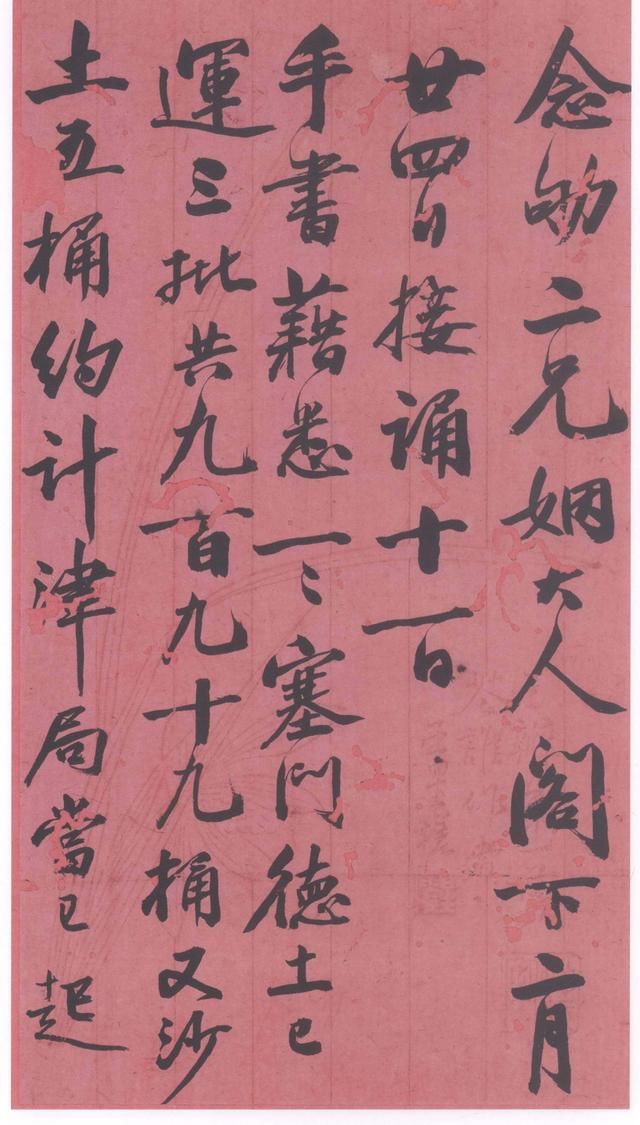 念劬二兄姻大人阁下二月
廿四日接诵十一日
手書藉悉一〻塞门德土已
運三批共九百九十九桶又沙
土五桶约计津局當已起